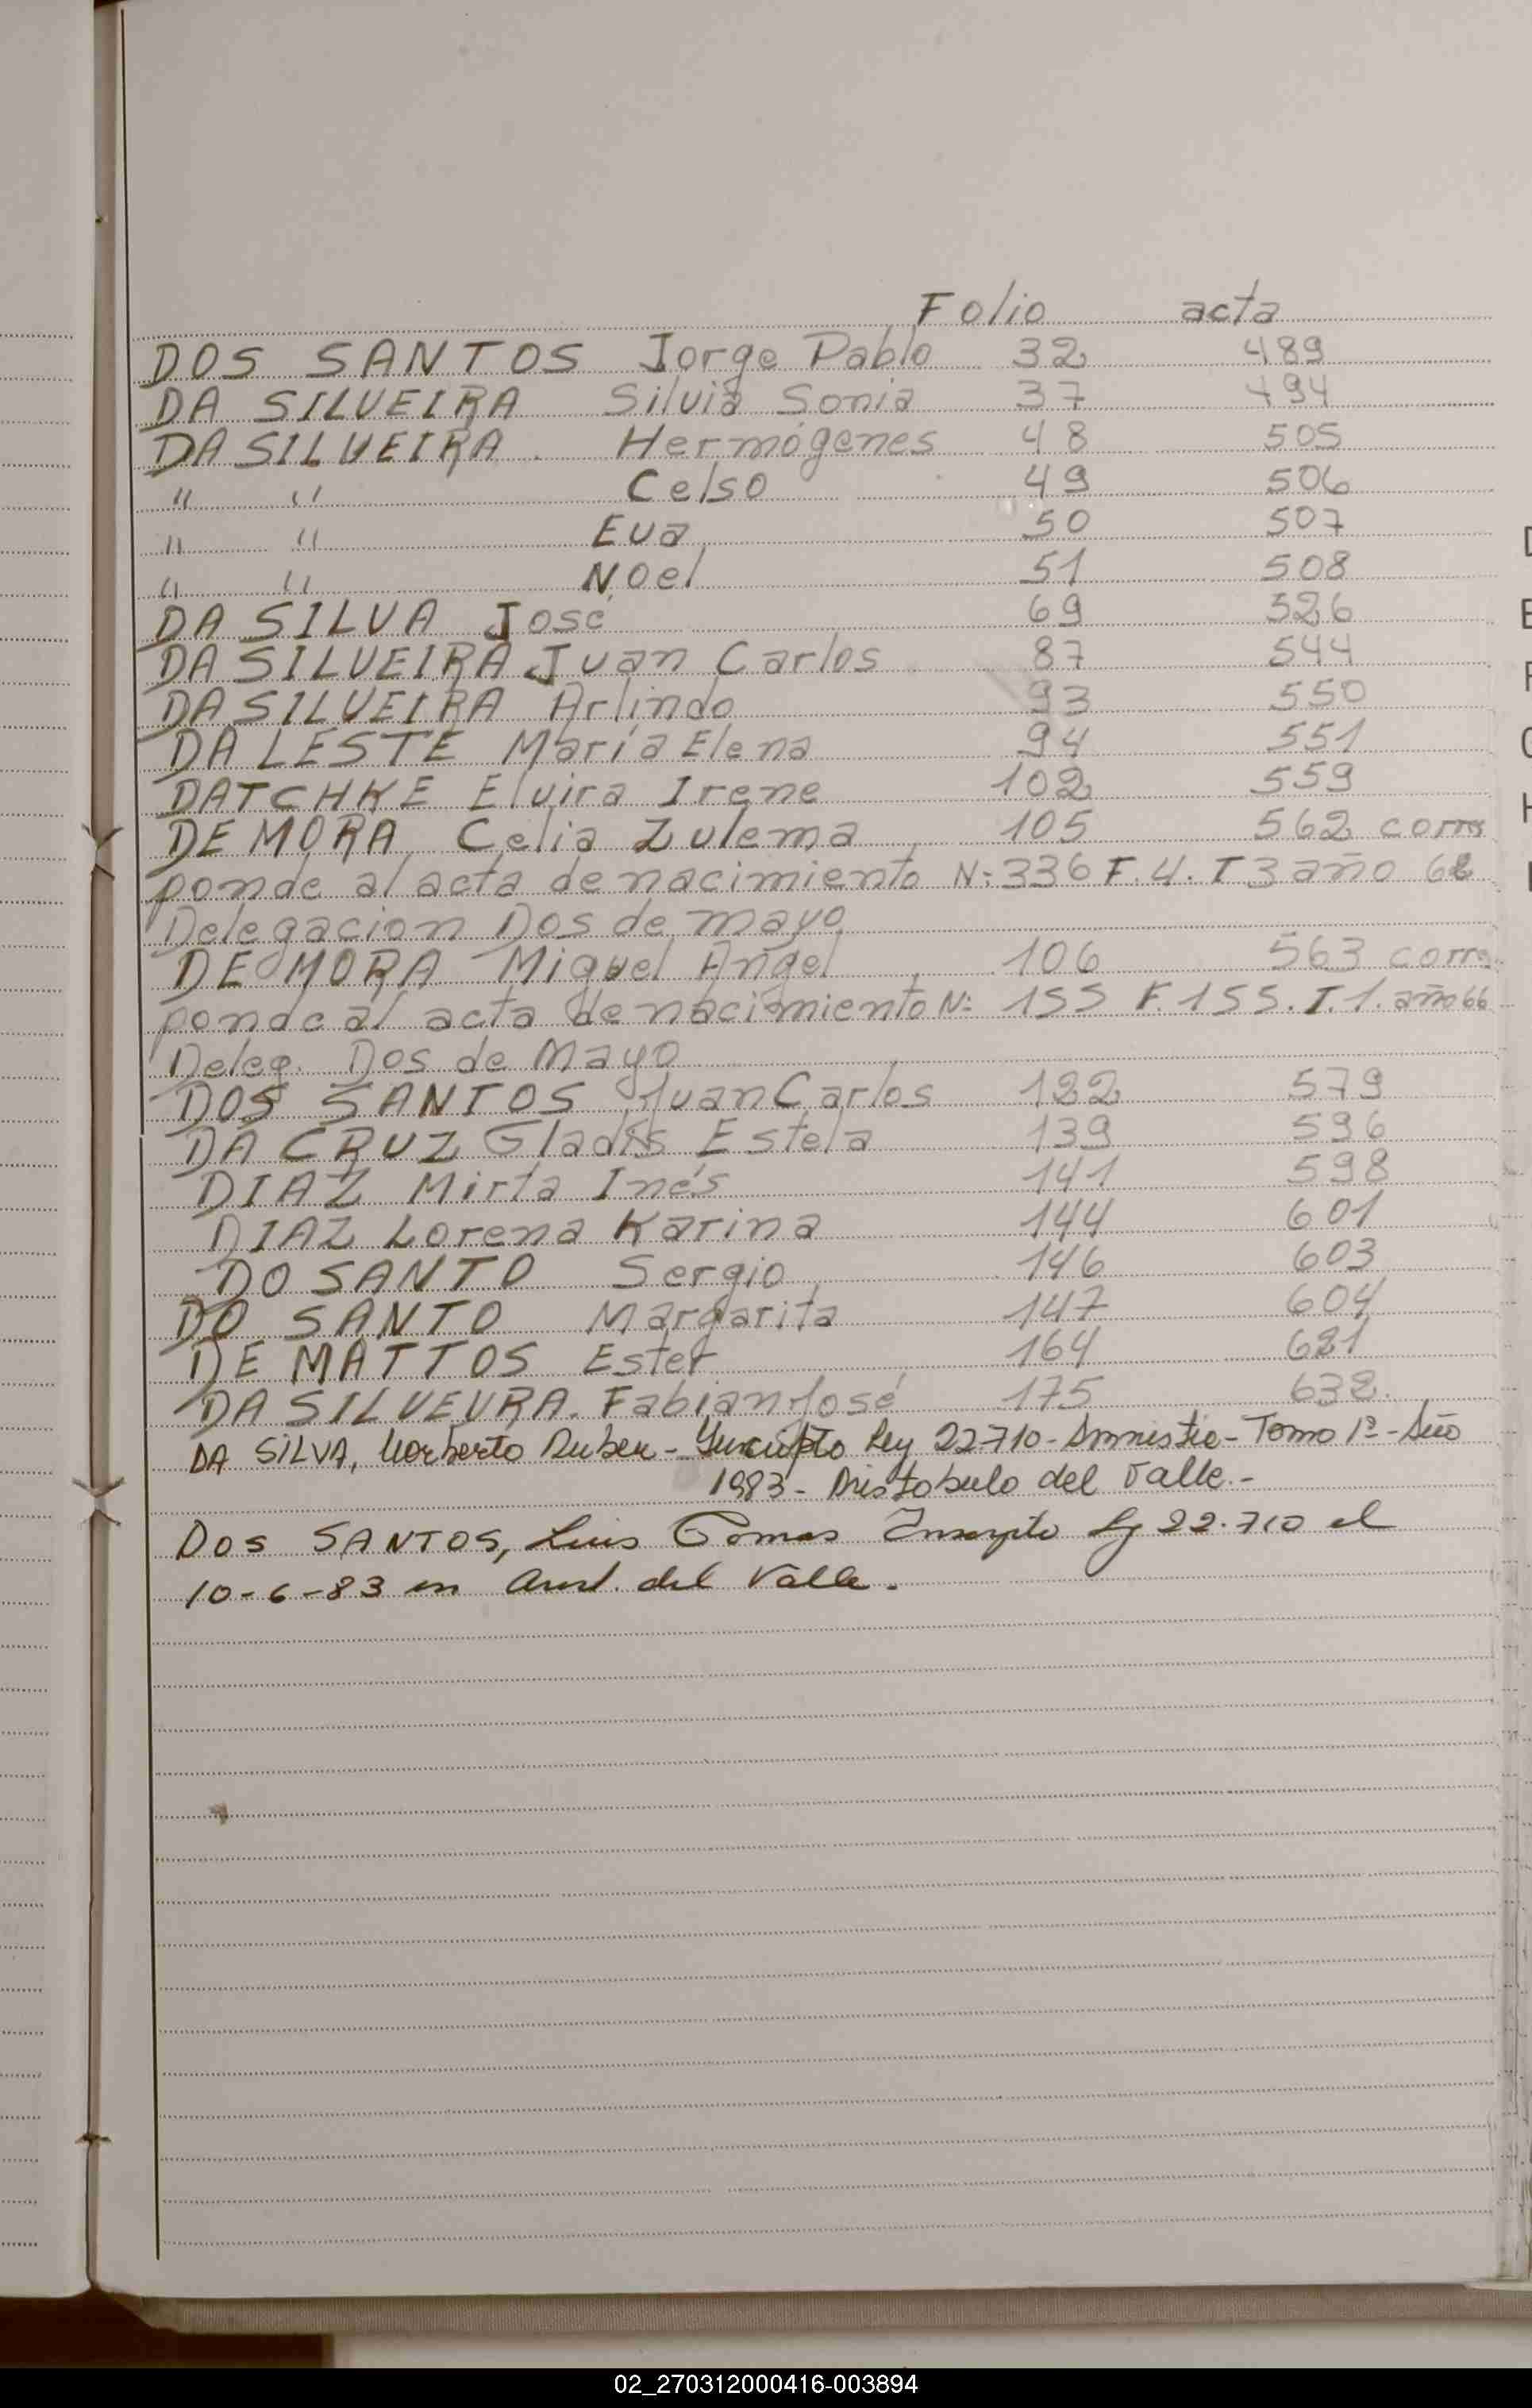 Folio acta
DOS SANTOS Jorge Pablo 32 489
DA SILVEIRA Silvia Sonia 37 494
DA SILVEIRA. Hermógenes 48 505
" " Celso 49 506
" " Eva 50 507
" " Noel 51 508
DA SILVA José 69 526
DA SILVEIRA Juan Carlos 87 544
DA SILVEIRA Arlindo 93 550
DA LESTE María Elena 94 551
DATCHKE Elvira Irene 102 559
DE MORA Celia Zulema 105 562 corres
ponde al acta de nacimiento N: 336 F. 4. T 3 año 68
Delegacion Dos de mayo
DE MORA Miguel Angel 106 563 corres
ponde al acta de nacimiento N: 155 F. 155. T. 1. año 66
Deleg. Dos de Mayo
DOS SANTOS Juan Carlos 122 579
DA CRUZ Gladis Estela 139 596
DIAZ Mirta Inés 141 598
DIAZ Lorena Karina 144 601
DO SANTO Sergio 146 603
DO SANTO Margarita 147 604
DE MATTOS Ester 164 621
DA SILVEURA. Fabian José 175 632.
DA SILVA, Norberto Ruben - Inscripto Ley 22710 - Amnistia - Tomo 1º - Año
1983 - Aristobulo del Valle. -
DOS SANTOS, Luis Tomas Inscripto Ly 22.710 el
10-6-83 en Arist. del Valle.
D
E
F
G
H
I
02_270312000416-003894